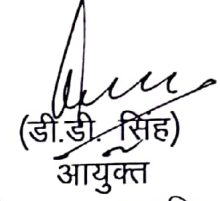 (डी.डी. सिंह)
आयुक्त